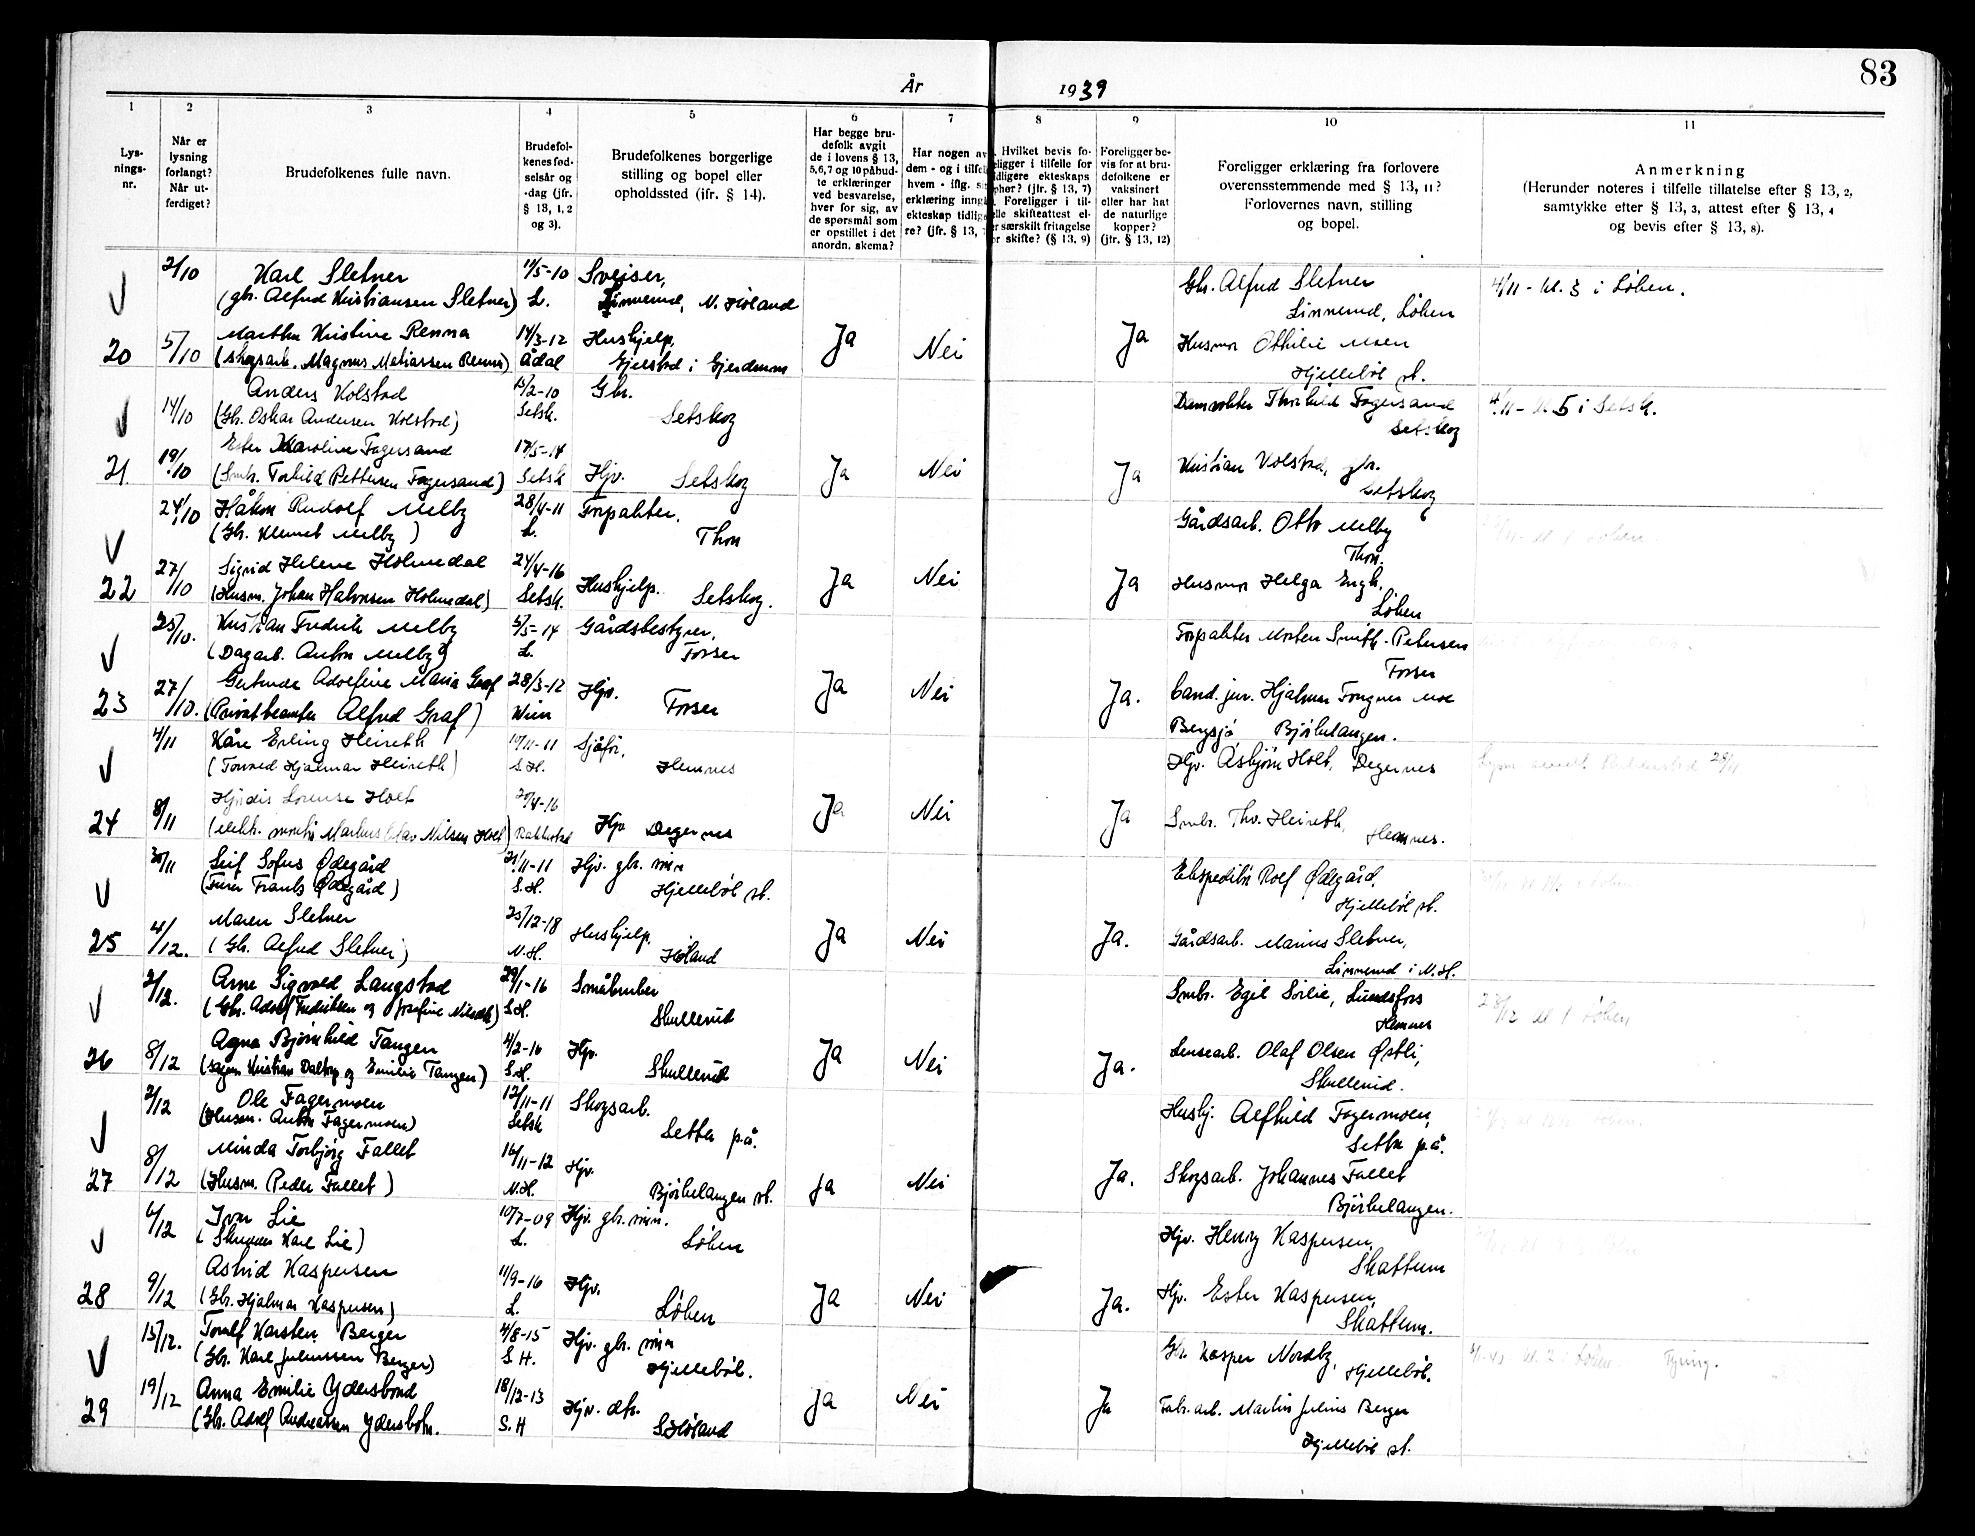 83
År 1939
1 2 3 4 5 6 7 8 9 10 11
Lys-
nings-
nr.
Når er
lysning
forlangt?
Når ut-
ferdiget?
Brudefolkenes fulle navn.
Brudefol-
kenes fød-
selsår og
-dag (jfr.
§ 13, 1, 2
og 3).
Brudefolkenes borgerlige
stilling og bopel eller
opholdssted (ifr. § 14).
Har begge bru-
defolk avgit
de i lovens § 13,
5,6,7 og 10 påbud-
te erklæringer
ved besvarelse,
hver for sig, av
de spørsmål som
er opstillet i det
anordn. skema?
Har nogen av
dem - og i tilfel
hvem - iflg. s
erklæring inng
ekteskap tidlig
re? (jfr. § 13,
Hvilket bevis fo-
eligger i tilfelle for
idligere ekteskaps
pher? (jfr. § 13, 7)
Foreligger i til-
elle skifteattest el-
r særskilt fritagelse
r skifte? (§ 13, 9)
Foreligger be-
vis for at bru-
defolkene er
vaksinert
eller har hat
de naturlige
kopper?
(jfr. § 13, 12)
Foreligger erklæring fra forlovere
overensstemmende med § 13, 11?
Forlovernes navn, stilling
og bopel.
Anmerkning
(Herunder noteres i tilfelle tillatelse efter § 13, 2,
samtykke efter § 13, 3, attest efter § 13, 4
og bevis efter § 13, 8).
2/10 Karl Sletner 11/5-10 Sveiser, Gbr. Alfred Sletner 4/11 - kl. 3 i Løken.
(gbr. Alfred Kristiansen Sletner) L. Linnerud, N. Høland Linnerud, Løken
20 5/10 Marthea Kristine Renna 14/3-12 Hushjelp, Ja Nei Ja Husmor Othilie Moen
(skogsarb. Magnus Renna) Ådal Gjelstad i Gjerdrum Hjellebøl st.
Anders Kolstad 13/2-10 Gbr. Thorhild Fagersand 4/11 - kl. 5 i Setsk.
14/10 (Gbr. Oskar Andersen Kolstad) Setsk. Setskog Setskog
21. 19/10 Ester Karoline Fagersand 17/5-14 Ja Nei Ja Kristian Kolstad, gbr.
(Smbr. Torkild Pettersen Fagersand) Setsk Hjv. Setskog Setskog
24/10 Håkon Rudolf Melby 28/4-11 Forpakter, Gårdsarb. Otto Melby
(Gbr. Klemet Melby) L. Thon Thon.
22 27/10 Sigrid Helene Holmedal 24/4-16 Hushjelp. Ja Nei Ja Husmor Helga Engh,
(Husm. Johan Halvorsen Holmedal) Setsk. Setskog. Løken
25/10. Kristian Fredrik Melby 5/5-14 Gårdsbestyrer, Forpakter Morten Smith-Petersen
(Dagarb. Anton Melby) L. Forser Forser
23 27/10. Gertrude Adolfine Maria Graf 28/3-12 Hjv. Ja Nei Ja. Cand. jur. Hjalmar Moe
(Privatbeamter Alfred Graf) Wien Forser Bergsjø Bjørkelangen.
4/11 Kåre Erling Heireth 10/11-11 Sjåfør, Hjv. Asbjørn Holt, Degernes
(Hjalmar Heireth) S.H. Hemnes
24 8/11 Hjørdis Lovense Holt 20/4-16 Hjv Degernes Ja Nei Ja Smbr. Thv. Heireth,
(Markus Olav Nilsen Holt) Rakkestad Hemnes.
30/11 Leif Sofus Ødegård 21/11-11 Hjv. gbr. sønn Ekspeditør Rolf Ødegård,
(Furer Frants Ødegård) S.H. Hjellebøl st. Hjellebøl st.
25 4/12. Maren Sletner 25/12-18 Hushjelp, Ja Nei Ja. Gårdsarb. Marius Sletner,
(Gbr. Alfred Sletner) N.H. Høland Linnerud i N.H.
2/12. Arne Sigvald Langstad 29/1-16 Småbruker Smbr. Egil Sørlie, Lundsfoss
(Gbr. Adolf Fredriksen og Josefine) S.H. Skullerud Hemnes
26 8/12 Agna Bjørnhild Tangen 4/2-16 Hjv. Ja Nei Ja. Lensearb. Olaf Olsen Østli,
(Kristian Daltorp og Emilie Tangen) S.H. Skullerud Skullerud.
2/12 Ole Fagermoen 12/11-11 Skogsarb. Hushj. Alfhild Fagermoen,
(Husm. Anton Fagermoen) Setsk Setten på. Setten på.
27 8/12 Minda Torbjørg Fallet 16/11-12 Hjv. Ja Nei Ja. Skogsarb. Johannes Fallet
(Husm. Peder Fallet) N.H. Bjørkelangen st. Bjørkelangen.
6/12 Ivar Lie 10/7-09 Hjv. gbr. sønn. Hjv. Henry Kaspersen,
(Karl Lie) L. Løken Skattum
28 9/12 Astrid Kaspersen 11/9-16 Hjv. Ja Nei Ja. Hjv. Ester Kaspersen,
(Gbr. Hjalmar Kaspersen) L. Løken Skattum.
15/12. Torolf Karsten Berger 4/8-15 Hjv. gbr. sønn Gbr. Kasper Nordby,
(Gbr. Karl Juliussen Berger) S.H. Hjellebøl. Hjellebøl.
29 19/12 Anna Emilie Ydersbond 18/12-13 Hjv. dtr. Ja Nei Ja Fabr. arb. Martin Julius Berger
(Gbr. Adolf Andreassen Ydersbotn. S.H S. Høland Hjellebøl st.